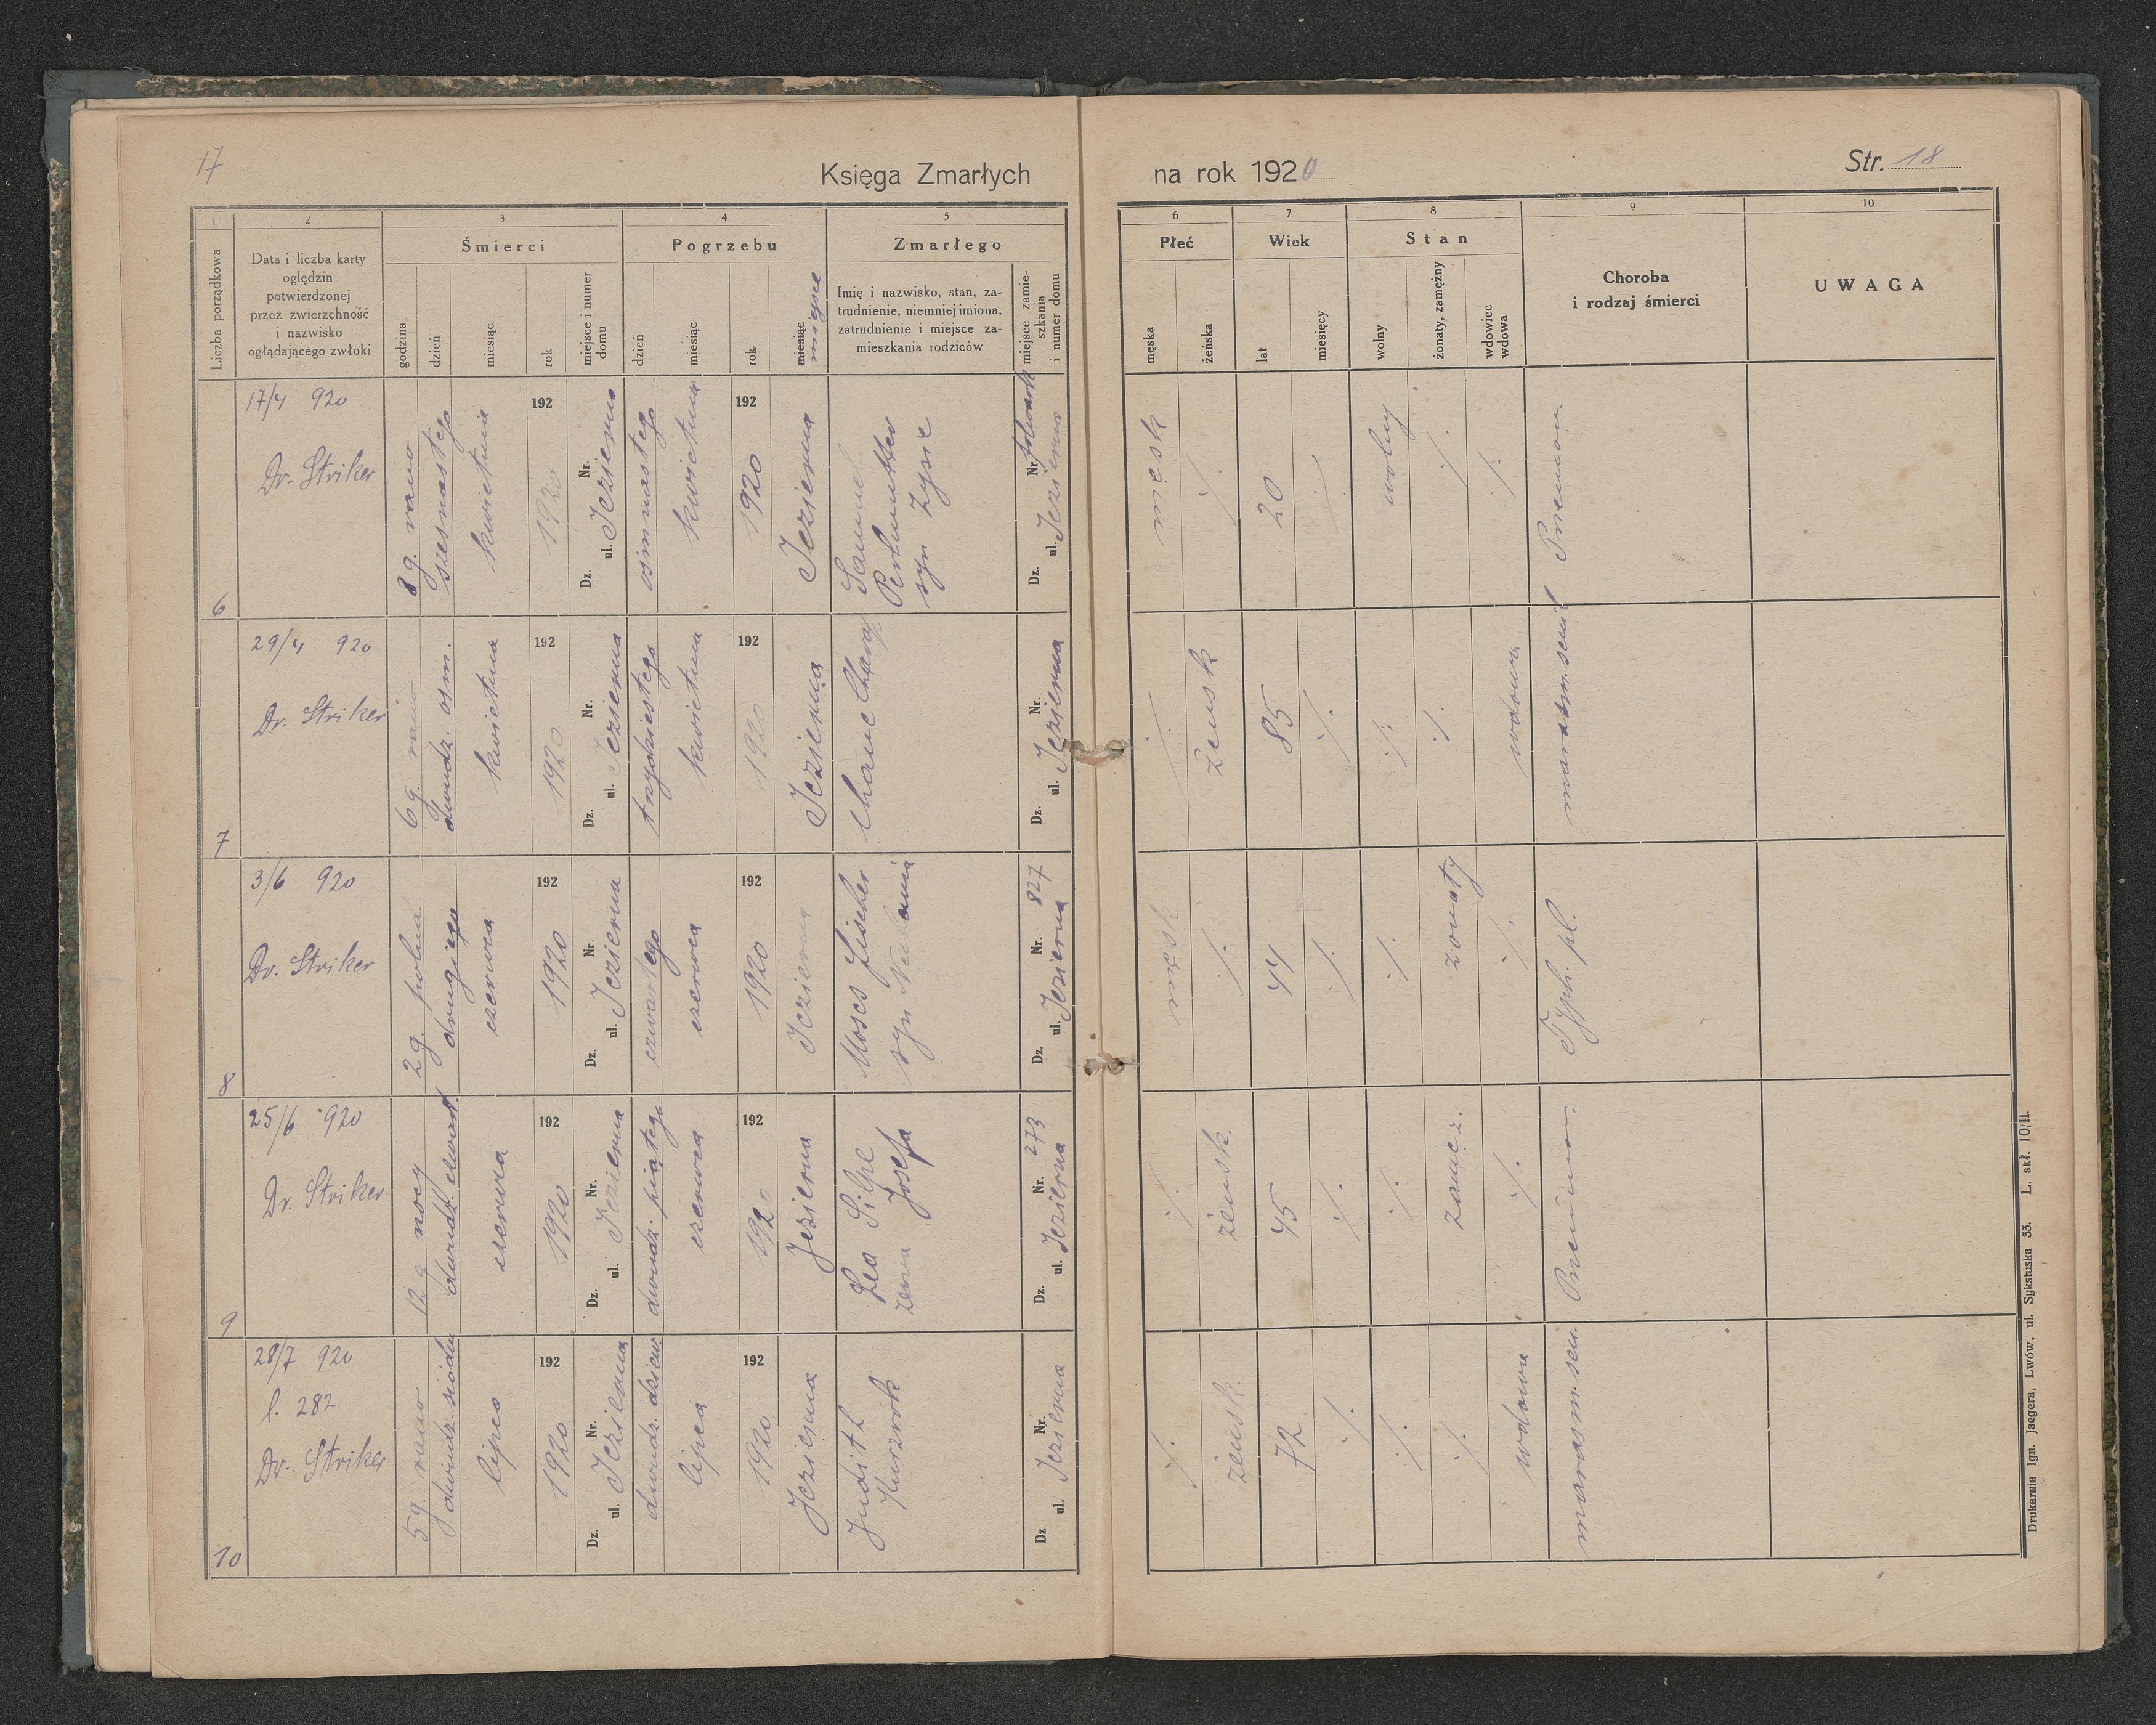 17
Księga Zmarłych
na rok 1920
Str. 18
1
2
3
4
5
6
7
8
9
10
Liczba porządkowa
Data i liczba karty
oględzin
potwierdzonej
przez zwierzchność
i nazwisko
oglądającego zwłoki
Śmierci
godzina
dzień
miesiąc
rok
miejsce i numer
domu
Pogrzebu
dzień
miesiąc
rok
miesiąc
miejsce
Zmarłego
Imię i nazwisko, stan, za-
trudnienie, niemniej imiona,
zatrudnienie i miejsce za-
mieszkania rodziców
miejsce zamie-
szkania
i numer domu
Płeć
męska
żeńska
Wiek
lat
miesięcy
Stan
wolny
żonaty, zamężny
wdowiec
wdowa
Choroba
i rodzaj śmierci
UWAGA
6
17/4 920
Dr. Striker
8 g. rano
szesnastego
kwietnia
192
1920
Dz. ul. Nr.
Jezierna
osmnastego
kwietnia
192
1920
Jezierna
Samuel
Perlmutter
syn Zysie
Dz. ul. Nr. folwark
Jezierna
męsk
./.
20
./.
wolny
./.
./.
Pnemon.
7
29/4 920
Dr. Striker
6 g. rano
dwudz. osm.
kwietnia
192
1920
Dz. ul. Nr.
Jezierna
trzydziestego
kwietnia
192
1920
Jezierna
Dz. ul. Nr.
Jezierna
./.
żensk
85
./.
./.
./.
wdowa
marasm. senil
8
3/6 920
Dr. Striker
2 g. połud.
drugiego
czerwca
192
1920
Dz. ul. Nr.
Jezierna
czwartego
czerwca
192
1920
Jezierna
Moses Fischer
syn
Dz. ul. Nr. 827
Jezierna
męsk
./.
44
./.
./.
żonaty
./.
Typh. pl.
9
25/6 920
Dr. Striker
12 g nocy
dwudz. czwart
czerwca
192
1920
Dz. ul. Nr.
Jezierna
dwudz. piątego
czerwca
192
1920
Jezierna
Lea
żona Josefa
Dz. ul. Nr. 273
Jezierna
./.
żensk.
45
./.
./.
zamęż.
./.
10
28/7 920
l. 282
Dr. Striker
5 g. rano
dwudz. siódm
lipca
192
1920
Dz. ul. Nr.
Jezierna
dwudz. dziew.
lipca
192
1920
Jezierna
Judith
Kurzrok
Dz. ul. Nr.
Jezierna
./.
żensk.
72
./.
./.
./.
wdowa
marasm. sen.
Drukarnia Ign. Jaegera, Lwów, ul. Sykstuska 33. L. skł. 10/II.